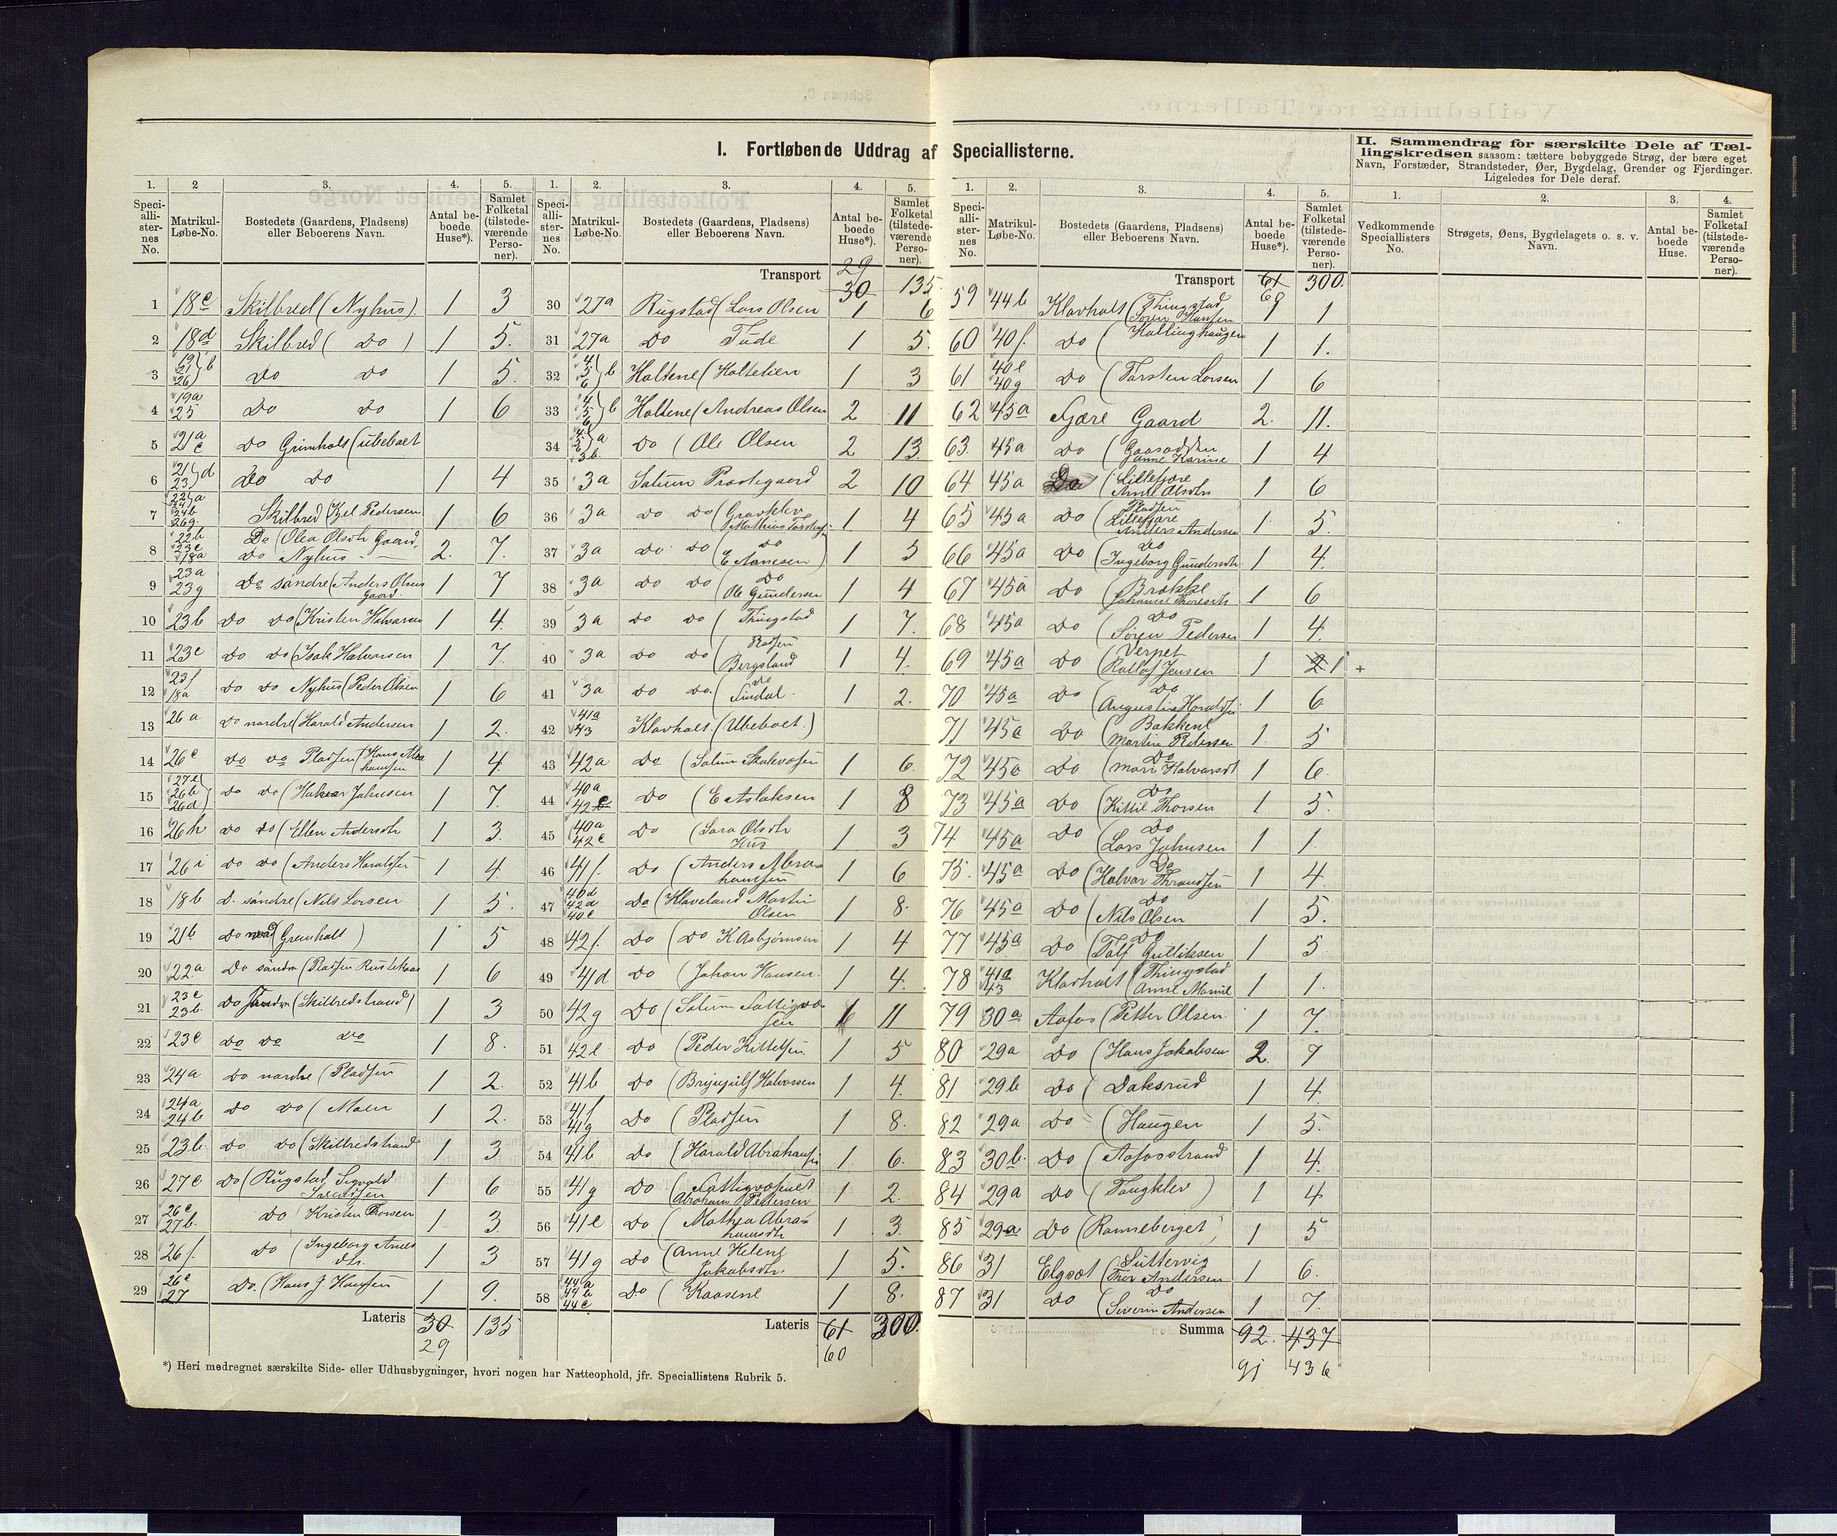 I. Fortløbende Uddrag af Speciallisterne.
II. Sammendrag for særskilte Dele af Tæl-
lingskredsen saasom: tættere bebyggede Strøg, der bære eget
Navn, Forstæder, Strandsteder, Øer, Bygdelag, Grender og Fjerdinger.
Ligeledes for Dele deraf.
1. 2 3. 4. 5.
Speciallisternes No. Matrikul-Løbe-No. Bostedets (Gaardens, Pladsens) eller Beboerens Navn. Antal beboede Huse*). Samlet Folketal (tilstedeværende Personer).
1 18c Skilbred (Nyhus) 1 3
2 18d Skilbred (Do) 1 5.
3 19 21 26 b Do Do 1 5.
4 19a 25 Do Do 1 6
5 21a c Do Grimholt (ubeboet
6 21 23 d Do Do 1 4
7 22a 24b 26g Skilbred (Kjel Pedersen 1 6
8 22b 23c 18a Do (Olea Olsdtr Gaard. Do Nyhus 2. 7.
9 23a 23g Do søndre (Anders Olsen Gaard 1 7
10 23b Do Do (Kristen Halvorsen 1 4.
11 23c Do Do (Isak Halvorsen 1 7.
12 23f 18a Do Do Nyhus (Peder Olsen 1 6
13 26a Do nordre (Harald Andersen 1 2.
14 26c Do Do Pladsen (Hans Abrahamsen 1 4.
15 27d 26b 26d Do Do (Halvor Johnsen 1 7.
16 26h Do Do (Ellen Andersdtr 1 3.
17 26i Do Do (Anders Haraldsen 1 4
18 18b D. søndre (Nils Larsen 1 5.
19 21b Do (Gremholt) 1 5
20 22a Do søndre (Pladsen 1 6
21 23c 23b. Do søndre (Skilbredstrand) 1 3
22 23c Do Do Do 1 8.
23 24a Do nordre (Pladsen 1 2.
24 24a 24b Do Do (Moen 1 2.
25 23b. Do Do (Skilbredstrand 1 3
26 27c Do (Rugstad Sigvald 1 6
27 26c 27b. Do (Kristen Thorsen 1 3
28 26f. Do (Ingeborg Andersdtr. 1 3
29 26c 27 Do. (Hans J Hansen 1 9.
Lateris 30 135
29
1. 2. 3. 4. 5.
Speciallisternes No. Matrikul-Løbe-No. Bostedets (Gaardens, Pladsens) eller Beboerens Navn. Antal beboede Huse*). Samlet Folketal (tilstedeværende Personer).
Transport 29 30 135
30 27a Rugstad (Lars Olsen 1 6
31 27a Do Tude 1 5.
32 4 5 6 b Holtene (Holteteien 1 3
33 4 5 6 b Holtene (Andreas Olsen 2 11
34 a 3b. Do (Ole Olsen 2 13
35 3a Solum Prestegaard 2 10
36 3a Do Do (Gravklev Mathias 1 4
37 3a Do Do (Do E Aanesen) 1 5
38 3a Do Do (Do Ole Gundersen 1 4
39 3a Do Do (Thingstad 1 7.
40 3a Do Do (Pladsen Bergsland 1 4.
41 3a Do Do (Do Lindal. 1 2.
42 41a 43 Klovholt (Ubeboet)
43 42a Do (Solum 1 6.
44 40a 42c Do (E Aslaksen 1 8
45 40a 42c Do (Sara Olsdtr Hus 1 3
46 41f. Do (Anders Abrahamsen 1 6
47 40d 42d 40c Do (Klaveland Martin Olsen 1 8.
48 42f. Do (Do K Asbjørnsen 1 4
49 41d Do (Johan Hansen. 1 4.
50 42g Do (Solum 1 11
51 42e Do (Peder Kittelsen 1 5
52 41b Do (Brynjulf Halvorsen 1 4.
53 41f 41g Do (Pladsen 1 8.
54 41b Do (Harald Abrahamsen 1. 6.
55 41g Do (Abraham Pedersen 1 2.
56 41e Do (Mathea Abrahamsdtr 1 3.
57 41g Do (Anne Helene Jakobsdtr 1 5.
58 44a 44c Do (Kaasene 1 8.
Lateris 61 300.
60
1. 2. 3. 4. 5.
Speciallisternes No. Matrikul-Løbe-No. Bostedets (Gaardens, Pladsens) eller Beboerens Navn. Antal beboede Huse*). Samlet Folketal (tilstedeværende Personer).
Transport 61 60 300.
59 44b Klovholt (Thingstad Søren Hansen 1 1
60 40f. Do (Hollinghaugen 1 1.
61 40e 40g Do (Torsten Larsen 1 6
62 45a Fjære Gaard 2. 11.
63. 45a Do (Anne Karine 1 4
64 45a Do (Lillefjære Anne Olsdtr 1 6
65 45a Do (Pladsen Lillefjære Anders Andersen 1. 5
66 45a Do (Do Ingeborg Gundersdtr 1 4.
67 45a Do (Brække Johanne Thoresdtr 1 6
68 45a Do (Do Søren Pedersen 1 4.
69 45a Do (Verpet Rollof Jensen 1 2 1 +
70 45a Do (Do Augustin Haraldsen 1 6.
71 45a Do (Bakkene Martin Pedersen 1. 5
72 45a Do (Do Mari Halvorsdt 1 6.
73 45a Do (Do Kittil Thorsen 1 5.
74 45a Do (Do Lars Johnsen 1 1.
75. 45a Do (Do Halvor 1 4.
76 45a Do (Do Nils Olsen 1 5.
77 45a Do (Do Tolf Gulliksen 1 5
78 41a 43 Klovholt (Thingstad Anne Marie 1 1.
79 30a Aafos (Petter Olsen. 1 7.
80 29a Do (Hans Jakobsen 2 7
81 29b Do (Daksrud 1 4.
82 29a Do (Haugen 1 5.
83 30b. Do (Aafosstrand 1 4.
84 29a Do (Tangklev) 1 4
85 29a Do (Ronneberget) 1 5
86 31 Elgvat (Suttervig Thor Andersen 1 6.
87 31 Do (Do Severin Andersen 1 7.
Summa 92. 437
91 436
1. 2. 3. 4.
Vedkommende Speciallisters No. Strøgets, Øens, Bygdelagets o. s. v. Navn. Antal beboede Huse. Samlet Folketal (tilstedeværende Personer).
*) Heri medregnet særskilte Side- eller Udhusbygninger, hvori nogen har Natteophold, jfr. Speciallistens Rubrik 5.